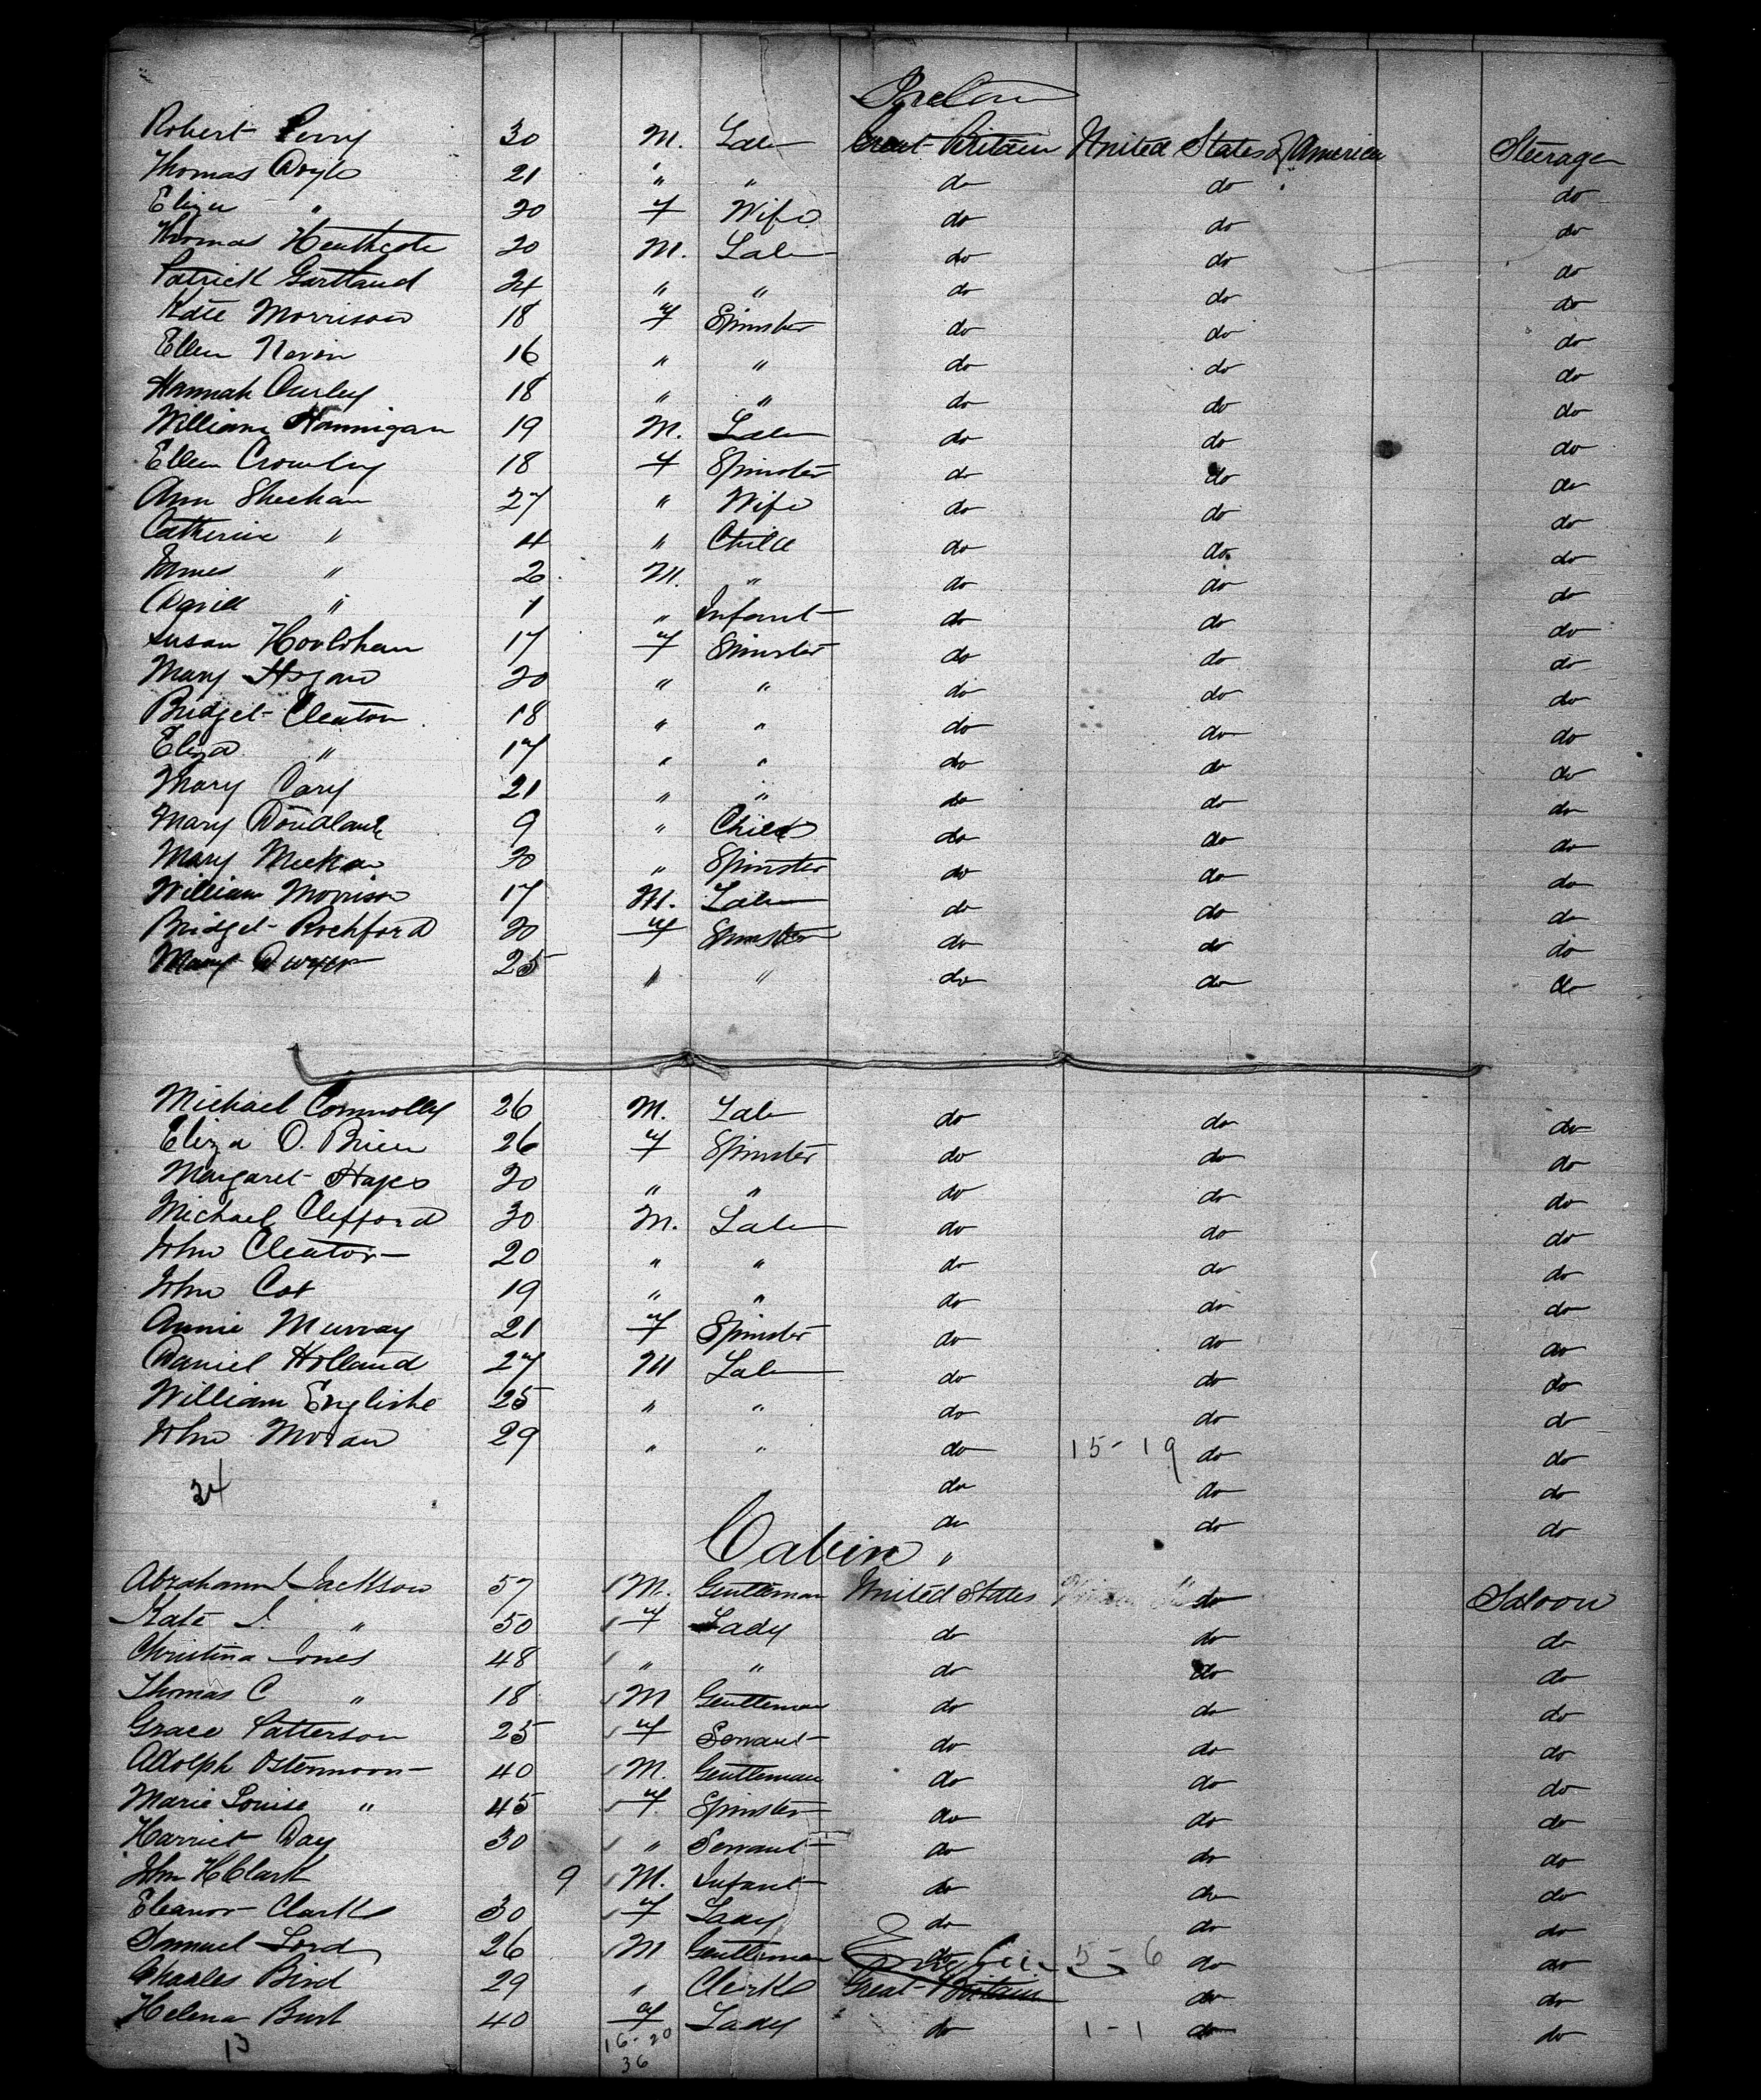 Ireland
Robert Perry 30 M. Lab Great Britain United States of America Steerage
Thomas Doyle 21 " " do do do
Eliza " 20 f Wife do do do
Thomas Heathcote 20 M. Lab do do do
Patrick Gartland 24 " " do do do
Kate Morrison 18 f Spinster do do do
Ellen Nevin 16 " " do do do
Hannah Curley 18 " " do do do
William Hannigan 19 M. Lab do do do
Ellen Crowley 18 f Spinster do do do
Ann Sheehan 27 " Wife do do do
Catherine " 4 " Child do do do
James " 2 M. " do do do
David " 1 " Infant do do do
Susan Hoolohan 17 f Spinster do do do
Mary Hogan 20 " " do do do
Bridget Cleaton 18 " " do do do
Eliza " 17 " " do do do
Mary Cary 21 " " do do do
Mary 9 " Child do do do
Mary Meehan 20 " Spinster do do do
William Morrison 17 M. Lab do do do
Bridget Rochford 20 f Spinster do do do
Mary Dwyer 25 " " do do do
Michael Connolly 26 M. Lab do do do
Eliza O. Brien 26 f Spinster do do do
Margaret Hayes 20 " " do do do
Michael Clifford 30 M. Lab do do do
John Cleator 20 " " do do do
John Cox 19 " " do do do
Annie Murray 21 f Spinster do do do
Daniel Holland 27 M Lab do do do
William Englishe 25 " " do do do
John Moran 29 " " do 15-19 do do
34 do do do
do do do
Cabin "
Abraham Jackson 57 M. Gentleman United States do Saloon
Kate J. " 50 f Lady do do do
Christina Jones 48 " " do do do
Thomas C " 18 M Gentleman do do do
Grace Patterson 25 f Servant do do do
Adolph Ostermoor 40 M. Gentleman do do do
Marie Louise " 45 f Spinster do do do
Harriet Day 30 " Servant do do do
John H Clark 9 M. Infant do do do
Eleanor Clark 30 f Lady do do do
Samuel Lord 26 M Gentleman do 5-6 do do
Charles Bird 29 " Clerk Great Britain do do
Helena Burt 40 f Lady do 1-1 do do
13 16-20
36